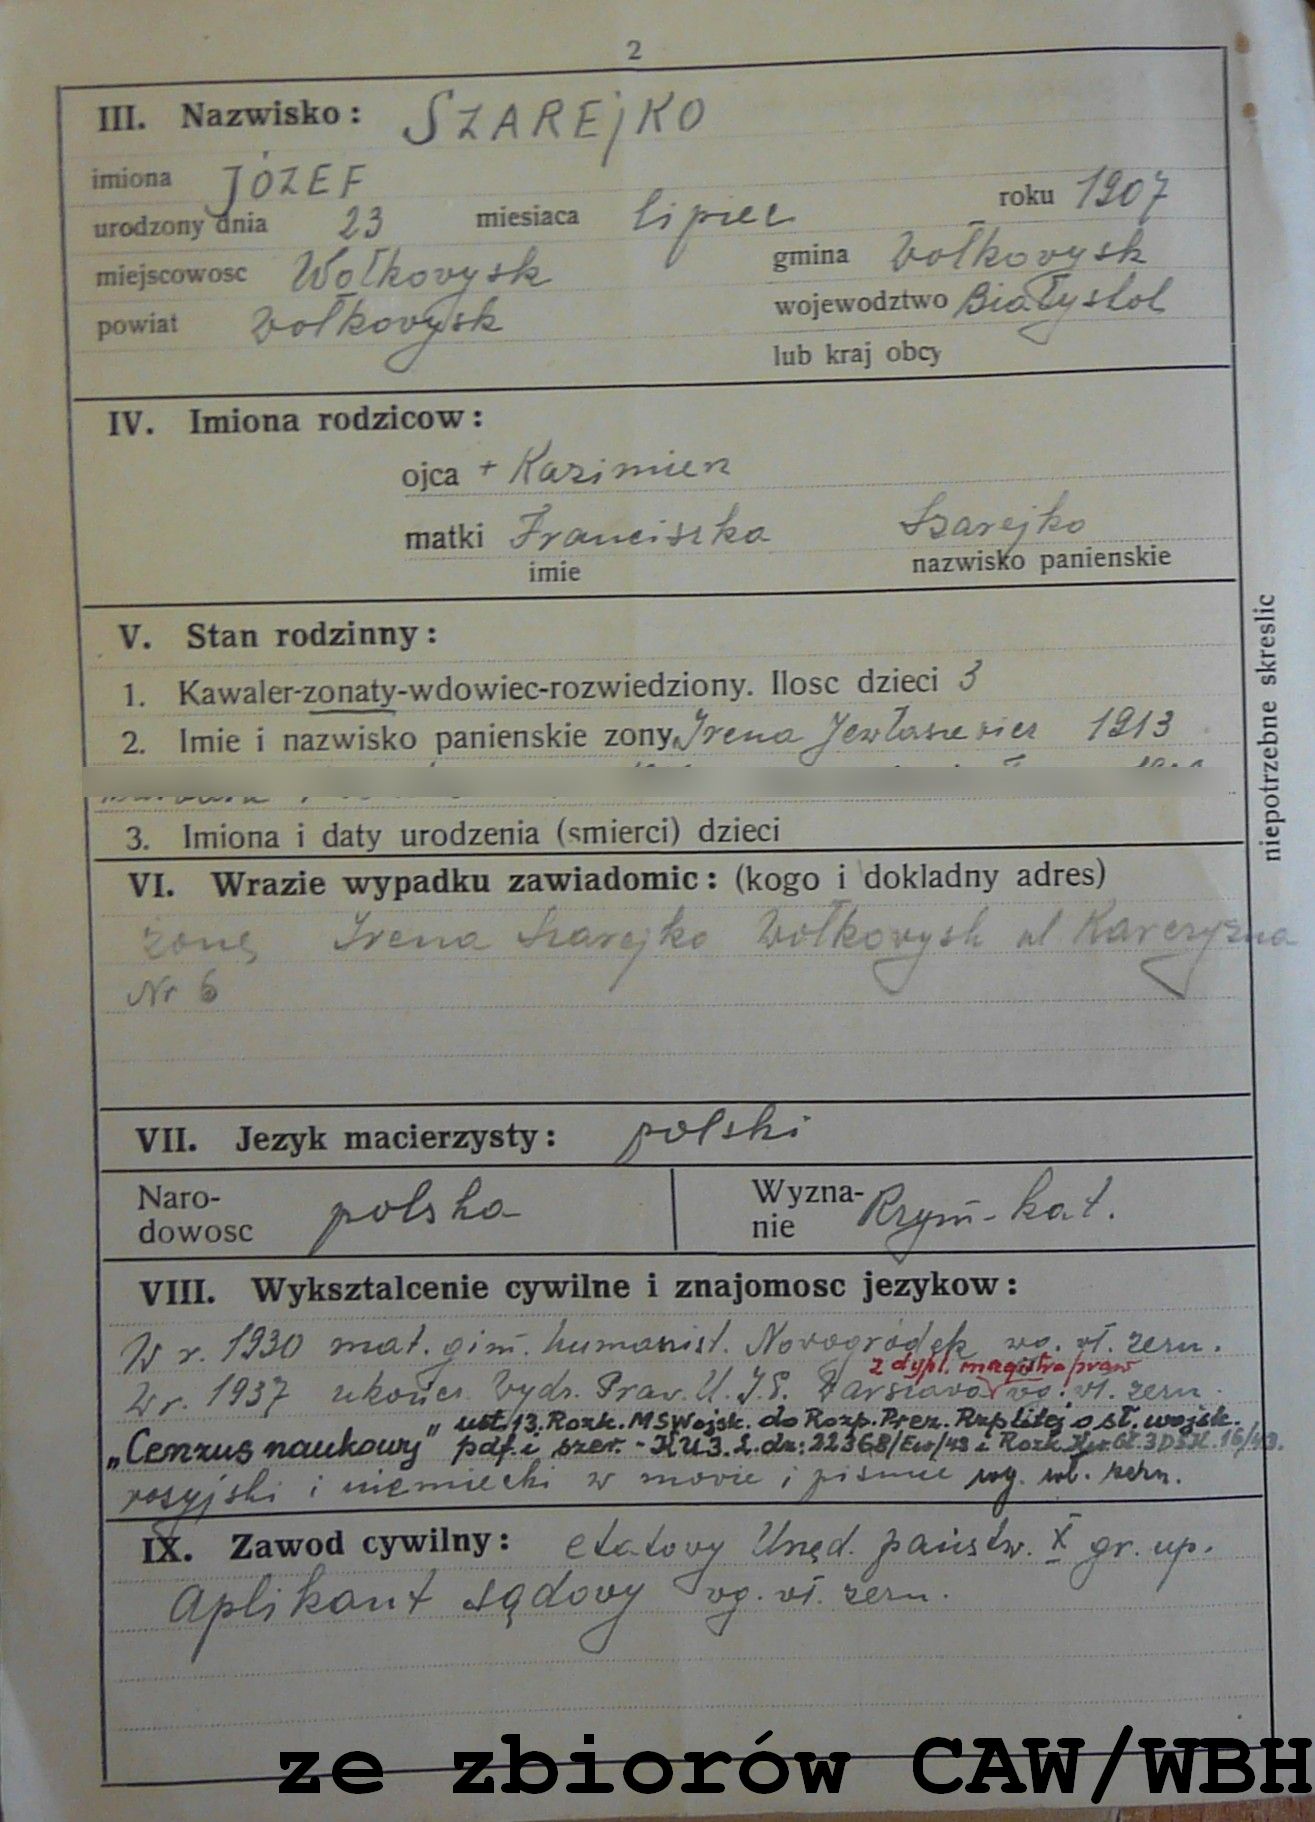 2
III. Nazwisko: SZAREJKO
imiona JÓZEF
urodzony dnia 23 miesiaca lipiec roku 1907
miejscowosc Wołkovysk gmina Wołkovysk
powiat Wołkovysk wojewodztwo Białystok
lub kraj obcy
IV. Imiona rodzicow:
ojca + Kazimierz
matki Franciszka Szarejko
imie nazwisko panienskie
V. Stan rodzinny:
1. Kawaler-zonaty-wdowiec-rozwiedziony. Ilosc dzieci 3
2. Imie i nazwisko panienskie zony Irena 1913
3. Imiona i daty urodzenia (smierci) dzieci
niepotrzebne skreslic
VI. Wrazie wypadku zawiadomic: (kogo i dokladny adres)
żonę Irena Szarejko Wołkovysk ul Karczyzna
Nr 6
VII. Jezyk macierzysty: polski
Naro-
dowosc polska
Wyzna-
nie Rzym-kat.
VIII. Wyksztalcenie cywilne i znajomosc jezykow:
W r. 1930 mat. gim. humanist. Novogródek vg. vł. zezn.
z dypl. magistra praw
W r. 1937 ukończ. Wydz. Prav. U.J.P. Warszava vg. vł. zezn.
ust. 13. Rozk. MSWojsk. do Rozp. Prez. Rzplitej o sł. wojsk.
„Cenzus naukowy" pdf. i szer. - KU3. L.dz: 22368/Ew/43 i Rozk. 3DSK. 16/43.
rosyjski i niemiecki w movie i piśmie wg. wł. zezn.
IX. Zawod cywilny: etatovy Urzęd. państw. X gr. up.
Aplikant sądovy vg. vł. zezn.
ze zbiorów CAW/WBH